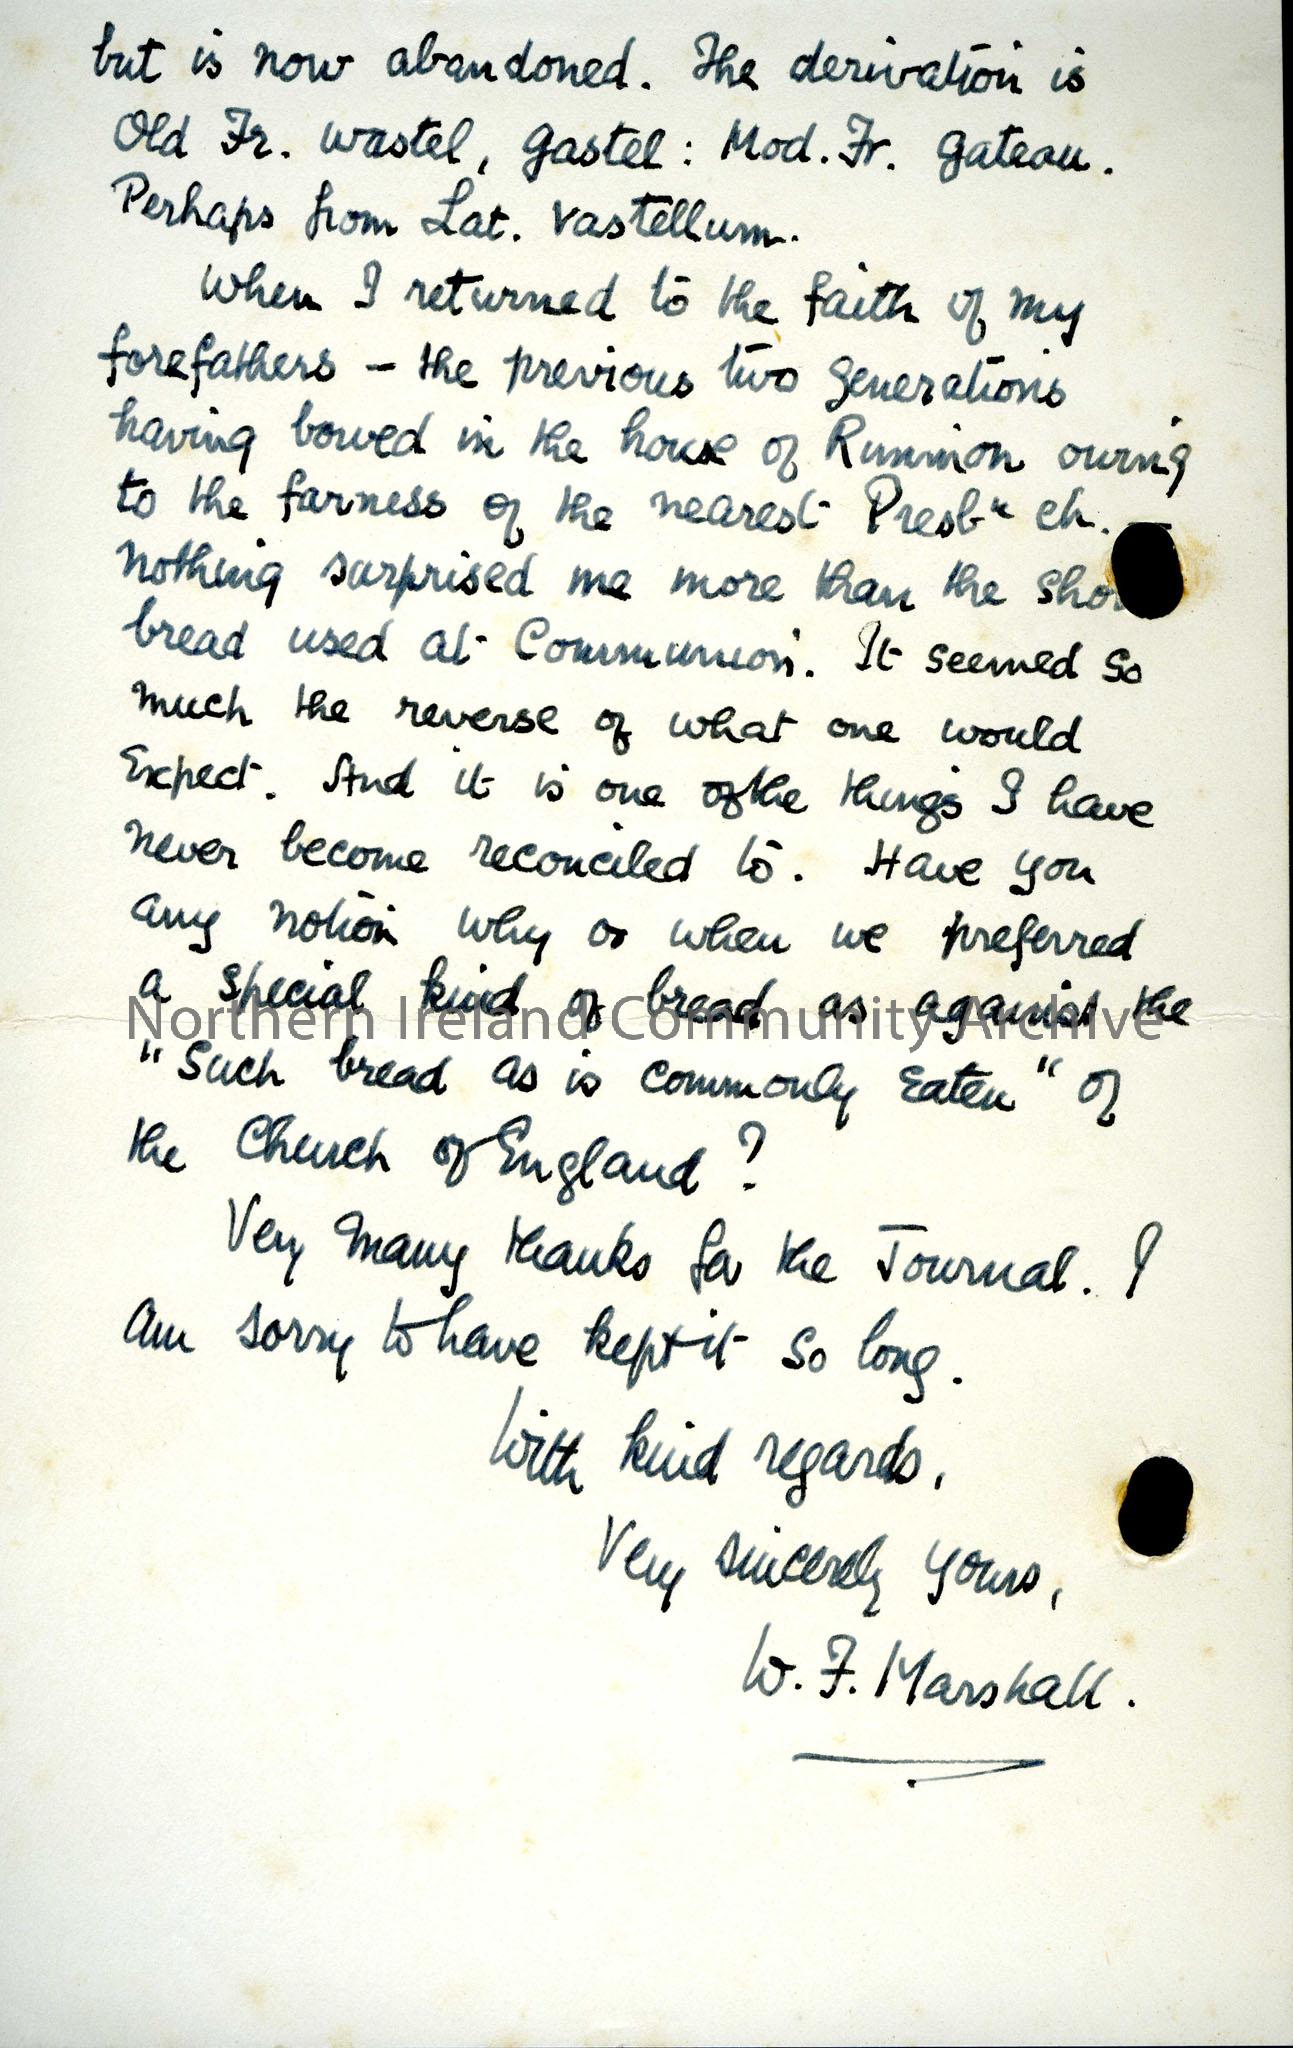 but is now abandoned. The derivation is
Old Fr. wastel, gastel: Mod. Fr. gateau.
Perhaps from Lat. vastellum.
When I returned to the faith of my
forefathers – the previous two generations
having bowed in the house of Rimmon owing
to the farness of the nearest Presbn ch. —
nothing surprised me more than the
bread used at Communion. It seemed so
much the reverse of what one would
expect. And it is one of the things I have
never become reconciled to. Have you
any notion why or when we preferred
a special kind of bread as against the
Northern Ireland Community Archive
"Such bread as is commonly eaten" of
the Church of England?
Very many thanks for the Journal. I
am sorry to have kept it so long.
With kind regards,
Very sincerely yours,
W. F. Marshall.